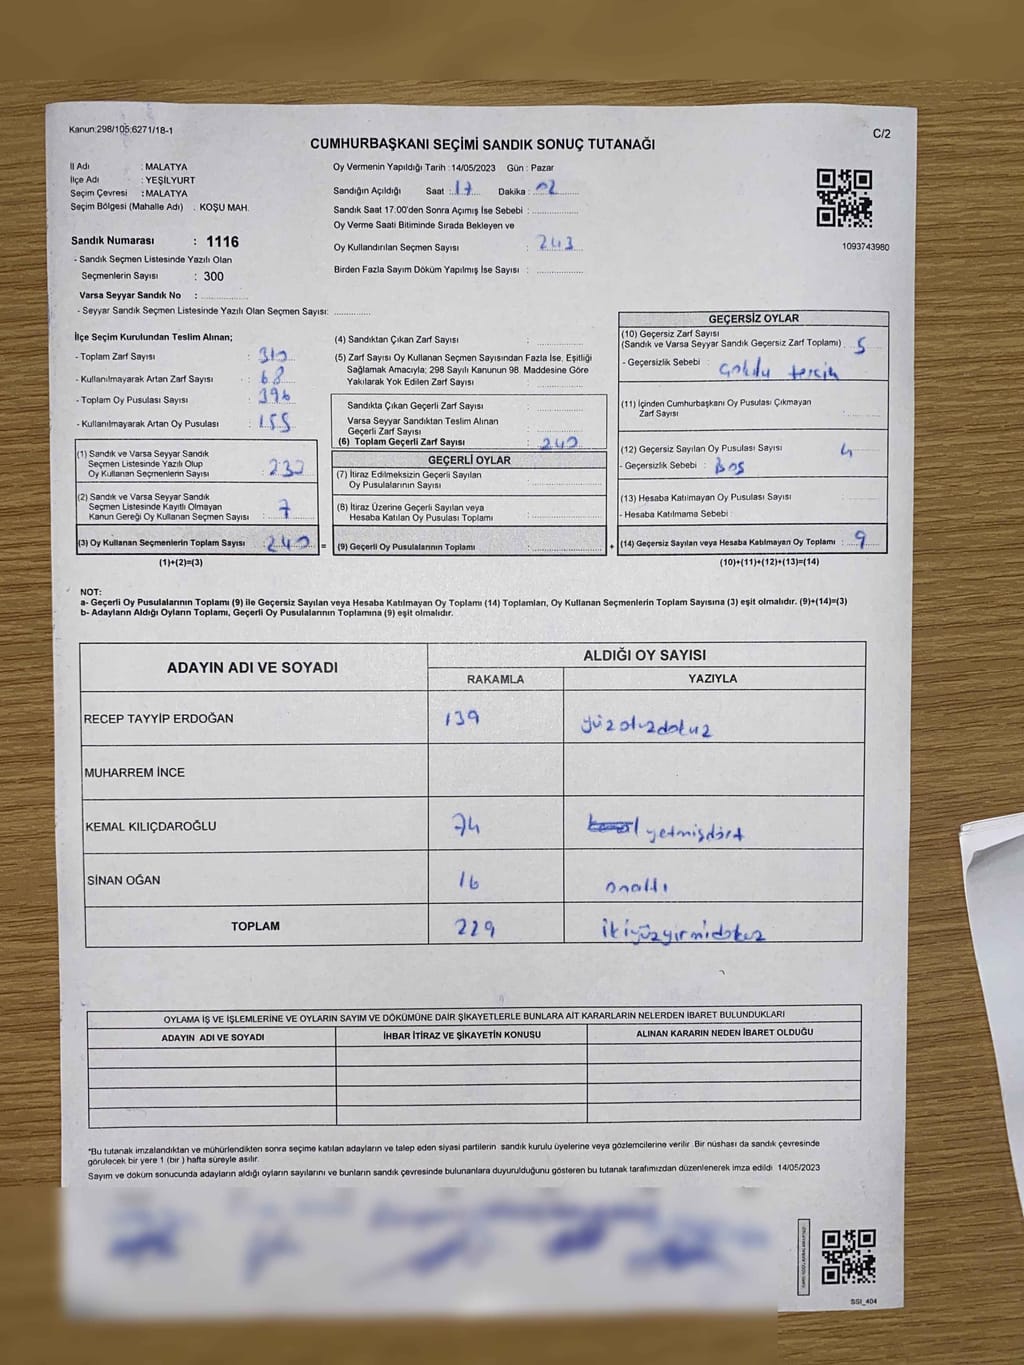 Kanun:298/105:6271/18-1
C/2
CUMHURBAŞKANI SEÇİMİ SANDIK SONUÇ TUTANAĞI
İl Adı : MALATYA
İlçe Adı : YEŞİLYURT
Seçim Çevresi : MALATYA
Seçim Bölgesi (Mahalle Adı) . KOŞU MAH.
Sandık Numarası : 1116
- Sandık Seçmen Listesinde Yazılı Olan
Seçmenlerin Sayısı : 300
Varsa Seyyar Sandık No :
- Seyyar Sandık Seçmen Listesinde Yazılı Olan Seçmen Sayısı:
Oy Vermenin Yapıldığı Tarih : 14/05/2023 Gün : Pazar
Sandığın Açıldığı Saat : 17 Dakika : 02
Sandık Saat 17:00'den Sonra Açımış İse Sebebi :
Oy Verme Saati Bitiminde Sırada Bekleyen ve
Oy Kullandırılan Seçmen Sayısı : 243
Birden Fazla Sayım Döküm Yapılmış İse Sayısı :
1093743980
İlçe Seçim Kurulundan Teslim Alınan;
- Toplam Zarf Sayısı : 310
- Kullanılmayarak Artan Zarf Sayısı : 68
- Toplam Oy Pusulası Sayısı : 396
- Kullanılmayarak Artan Oy Pusulası : 155
(1) Sandık ve Varsa Seyyar Sandık
Seçmen Listesinde Yazılı Olup
Oy Kullanan Seçmenlerin Sayısı : 232
(2) Sandık ve Varsa Seyyar Sandık
Seçmen Listesinde Kayıtlı Olmayan
Kanun Gereği Oy Kullanan Seçmen Sayısı : 7
(3) Oy Kullanan Seçmenlerin Toplam Sayısı : 240 =
(1)+(2)=(3)
(4) Sandıktan Çıkan Zarf Sayısı :
(5) Zarf Sayısı Oy Kullanan Seçmen Sayısından Fazla İse, Eşitliği
Sağlamak Amacıyla; 298 Sayılı Kanunun 98. Maddesine Göre
Yakılarak Yok Edilen Zarf Sayısı :
Sandıkta Çıkan Geçerli Zarf Sayısı :
Varsa Seyyar Sandıktan Teslim Alınan
Geçerli Zarf Sayısı :
(6) Toplam Geçerli Zarf Sayısı : 240
GEÇERLİ OYLAR
(7) İtiraz Edilmeksizin Geçerli Sayılan
Oy Pusulalarının Sayısı :
(8) İtiraz Üzerine Geçerli Sayılan veya
Hesaba Katılan Oy Pusulası Toplamı :
(9) Geçerli Oy Pusulalarının Toplamı : +
GEÇERSİZ OYLAR
(10) Geçersiz Zarf Sayısı
(Sandık ve Varsa Seyyar Sandık Geçersiz Zarf Toplamı) : 5
- Geçersizlik Sebebi : Çoklu tercih
(11) İçinden Cumhurbaşkanı Oy Pusulası Çıkmayan
Zarf Sayısı :
(12) Geçersiz Sayılan Oy Pusulası Sayısı : 4
- Geçersizlik Sebebi : Boş
(13) Hesaba Katılmayan Oy Pusulası Sayısı :
- Hesaba Katılmama Sebebi :
(14) Geçersiz Sayılan veya Hesaba Katılmayan Oy Toplamı : 9
(10)+(11)+(12)+(13)=(14)
NOT:
a- Geçerli Oy Pusulalarının Toplamı (9) ile Geçersiz Sayılan veya Hesaba Katılmayan Oy Toplamı (14) Toplamları, Oy Kullanan Seçmenlerin Toplam Sayısına (3) eşit olmalıdır. (9)+(14)=(3)
b- Adayların Aldığı Oyların Toplamı, Geçerli Oy Pusulalarının Toplamına (9) eşit olmalıdır.
ADAYIN ADI VE SOYADI
ALDIĞI OY SAYISI
RAKAMLA YAZIYLA
RECEP TAYYİP ERDOĞAN 139 yüzotuzdokuz
MUHARREM İNCE
KEMAL KILIÇDAROĞLU 74 yetmişdört
SİNAN OĞAN 16 onaltı
TOPLAM 229 ikiyüzyirmidokuz
OYLAMA İŞ VE İŞLEMLERİNE VE OYLARIN SAYIM VE DÖKÜMÜNE DAİR ŞİKAYETLERLE BUNLARA AİT KARARLARIN NELERDEN İBARET BULUNDUKLARI
ADAYIN ADI VE SOYADI İHBAR İTİRAZ VE ŞİKAYETİN KONUSU ALINAN KARARIN NEDEN İBARET OLDUĞU
*Bu tutanak imzalandıktan ve mühürlendikten sonra seçime katılan adayların ve talep eden siyasi partilerin sandık kurulu üyelerine veya gözlemcilerine verilir. Bir nüshası da sandık çevresinde
görülecek bir yere 1 (bir ) hafta süreyle asılır.
Sayım ve döküm sonucunda adayların aldığı oyların sayılarını ve bunların sandık çevresinde bulunanlara duyurulduğunu gösteren bu tutanak tarafımızdan düzenlenerek imza edildi 14/05/2023
SSI_404